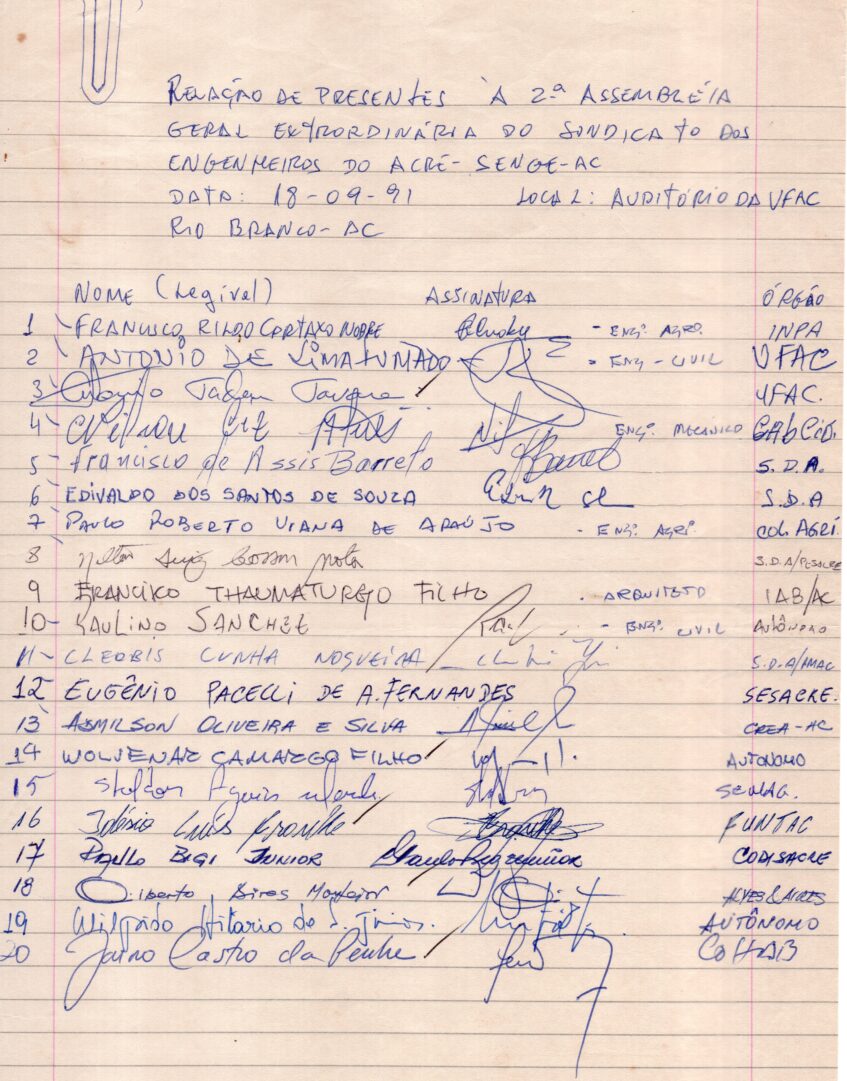 RELAÇÃO DE PRESENTES À 2ª ASSEMBLÉIA
GERAL EXTRORDINÁRIA DO SINDICATO DOS
ENGENHEIROS DO ACRE- SENGE-AC
DATA: 18-09-91 LOCAL: AUDITÓRIO DA UFAC
RIO BRANCO-AC
NOME (Legível) ASSINATURA ÓRGÃO
1 - FRANCISCO RILDO CARTAXO NOBRE - ENGº. AGRO. INPA
2 - ANTONIO DE LIMA FURTADO - ENG - CIVIL UFAC
3 - UFAC.
4 - Nilson ENGº. MECÂNICO GABCiv.
5 - Francisco de Assis Barreto S.D.A.
6 - EDIVALDO DOS SANTOS DE SOUZA S.D.A
7 - PAULO ROBERTO VIANA DE ARAÚJO - ENGº. AGRº. COL. AGRÍ.
8 S.D.A/PESACRE
9 FRANCISCO THAUMATURGO FILHO - ARQUITETO IAB/AC
10 - RAULINO SANCHEZ - ENGº. CIVIL AUTÔNOMO
11 - CLEOBIS CUNHA NOGUEIRA S.D.A/AMAC
12 EUGÊNIO PACELLI DE A. FERNANDES SESACRE.
13 ADMILSON OLIVEIRA E SILVA CREA-AC
14 WOLVENAR CAMARGO FILHO AUTONOMO
15
16 Idésio Luís Franke FUNTAC
17 PAULO BIGI JUNIOR CODISACRE
18 Gilberto Aires ALVES & AIRES
19 Wilfrido Hilario de S. Júnior. AUTÔNOMO
20 Jairo Castro da Penha COHAB